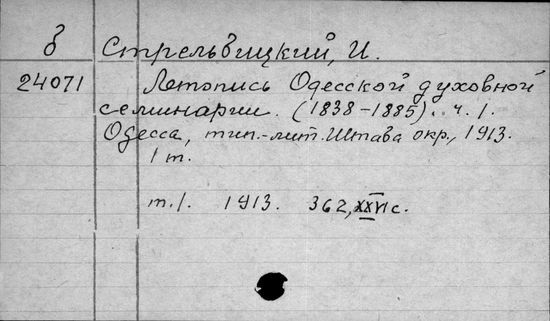 б Стрельбицкий, И.
24071 Летопись Одесской духовной
семинарии. (1838-1885). ч. 1.
Одесса, тип.-лит. Штаба окр., 1913.
1 т.
т. 1. 1913. 362, XXVI с.